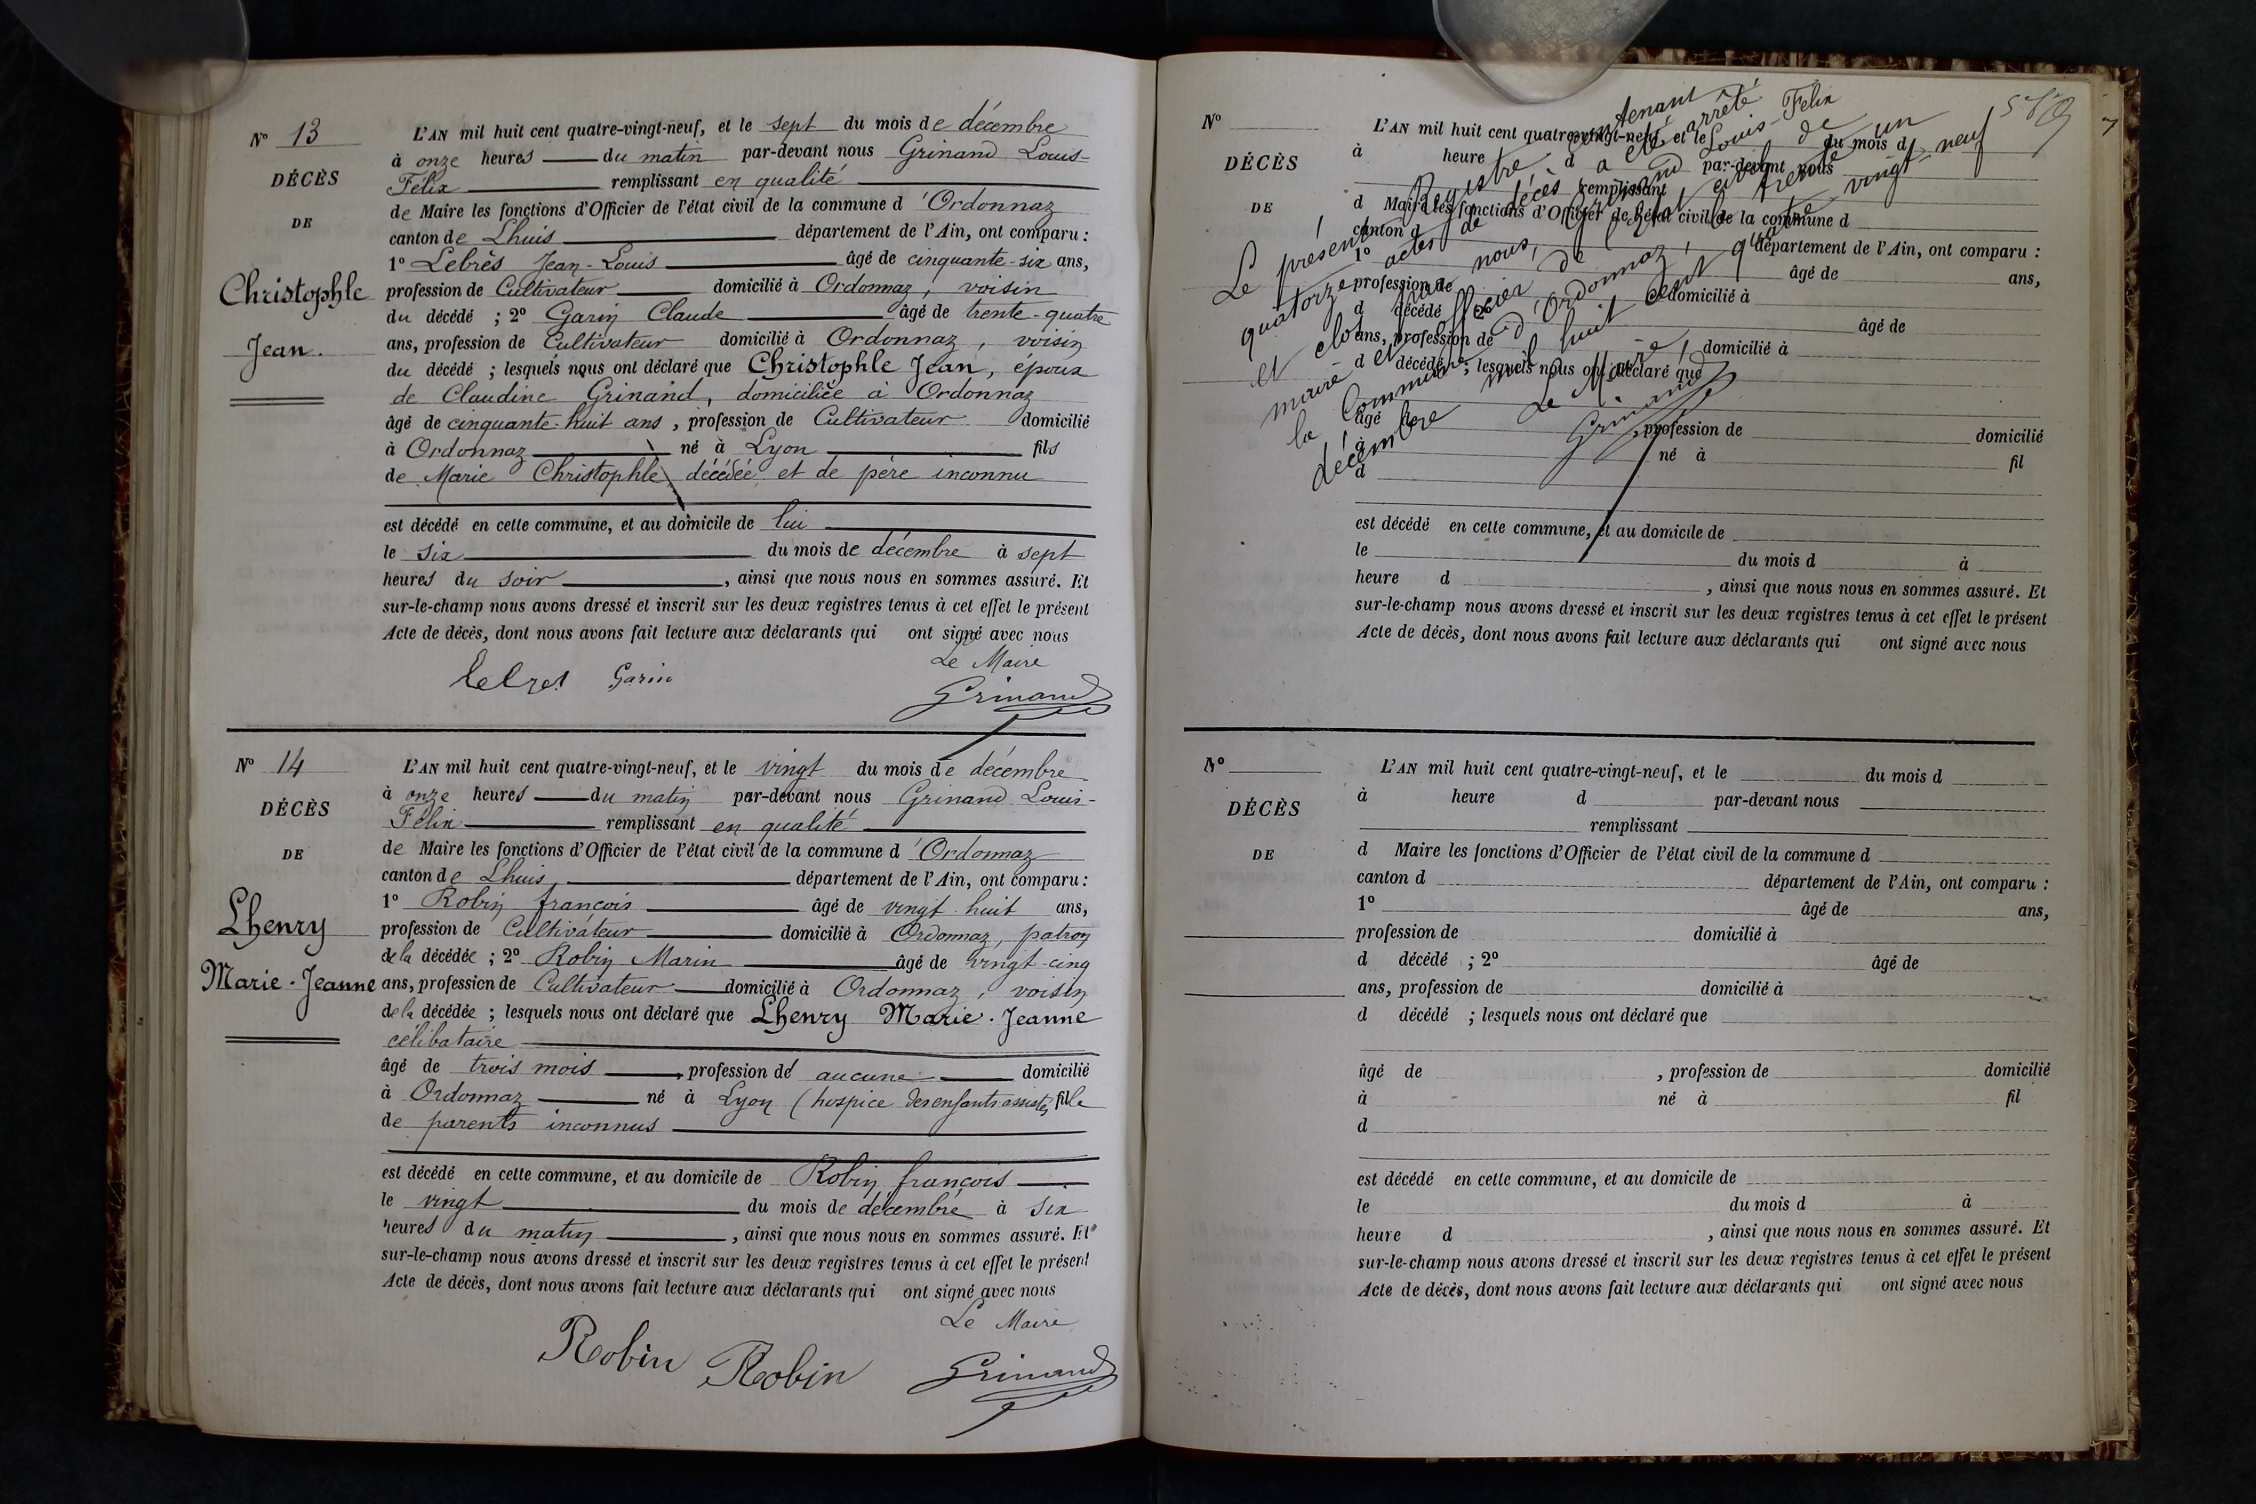 Nº 13
DÉCÈS
DE
Christophle
Jean.
L'AN mil huit cent quatre-vingt-neuf, et le sept du mois de décembre
à onze heures du matin par-devant nous Grinand Louis-
Félix remplissant en qualité
de Maire les fonctions d'Officier de l'état civil de la commune d'Ordonnaz
canton de Lhuis département de l'Ain, ont comparu :
1º Lebrès Jean-Louis âgé de cinquante-six ans,
profession de Cultivateur domicilié à Ordonnaz, voisin
du décédé ; 2º Garin Claude âgé de trente-quatre
ans, profession de Cultivateur domicilié à Ordonnaz, voisin
du décédé ; lesquels nous ont déclaré que Christophle Jean, époux
de Claudine Grinand, domiciliée à Ordonnaz
âgé de cinquante-huit ans, profession de Cultivateur domicilié
à Ordonnaz né à Lyon fils
de Marie Christophle, décédée et de père inconnu
est décédé en cette commune, et au domicile de lui
le six du mois de décembre à sept
heures du soir, ainsi que nous nous en sommes assuré. Et
sur-le-champ nous avons dressé et inscrit sur les deux registres tenus à cet effet le présent
Acte de décès, dont nous avons fait lecture aux déclarants qui ont signé avec nous
Le Maire
Lebres Garin
Grinand
Nº 14
DÉCÈS
DE
Lhenry
Marie-Jeanne
L'AN mil huit cent quatre-vingt-neuf, et le vingt du mois de décembre
à onze heures du matin par-devant nous Grinand Louis-
Félix remplissant en qualité
de Maire les fonctions d'Officier de l'état civil de la commune d'Ordonnaz
canton de Lhuis département de l'Ain, ont comparu :
1º Robin françois âgé de vingt-huit ans,
profession de Cultivateur domicilié à Ordonnaz, patron
de la décédée ; 2º Robin Marin âgé de vingt-cinq
ans, profession de Cultivateur domicilié à Ordonnaz, voisin
de la décédée ; lesquels nous ont déclaré que Lhenry Marie-Jeanne
célibataire
âgé de trois mois, profession de aucune domicilié
à Ordonnaz né à Lyon (hospice des enfants assistés) fille
de parents inconnus
est décédé en cette commune, et au domicile de Robin françois
le vingt du mois de décembre à six
heures du matin, ainsi que nous nous en sommes assuré. Et
sur-le-champ nous avons dressé et inscrit sur les deux registres tenus à cet effet le présent
Acte de décès, dont nous avons fait lecture aux déclarants qui ont signé avec nous
Le Maire
Robin Robin Grinand
Le présent Registre contenant
quatorze actes de décès a été arrêté
et clos par nous, Grinand Louis-Félix
maire et officier de l'état civil de
la Commune d'Ordonnaz, le trente un
décembre mil huit cent quatre vingt-neuf
Le Maire,
Grinand
7
Nº
DÉCÈS
DE
L'AN mil huit cent quatre-vingt-neuf, et le du mois d
à heure d par-devant nous
remplissant
d Maire les fonctions d'Officier de l'état civil de la commune d
canton d département de l'Ain, ont comparu :
1º âgé de ans,
profession de domicilié à
d décédé ; 2º âgé de
ans, profession de domicilié à
d décédé ; lesquels nous ont déclaré que
âgé de , profession de domicilié
à né à fil
d
est décédé en cette commune, et au domicile de
le du mois d à
heure d , ainsi que nous nous en sommes assuré. Et
sur-le-champ nous avons dressé et inscrit sur les deux registres tenus à cet effet le présent
Acte de décès, dont nous avons fait lecture aux déclarants qui ont signé avec nous
Nº
DÉCÈS
DE
L'AN mil huit cent quatre-vingt-neuf, et le du mois d
à heure d par-devant nous
remplissant
d Maire les fonctions d'Officier de l'état civil de la commune d
canton d département de l'Ain, ont comparu :
1º âgé de ans,
profession de domicilié à
d décédé ; 2º âgé de
ans, profession de domicilié à
d décédé ; lesquels nous ont déclaré que
âgé de , profession de domicilié
à né à fil
d
est décédé en cette commune, et au domicile de
le du mois d à
heure d , ainsi que nous nous en sommes assuré. Et
sur-le-champ nous avons dressé et inscrit sur les deux registres tenus à cet effet le présent
Acte de décès, dont nous avons fait lecture aux déclarants qui ont signé avec nous